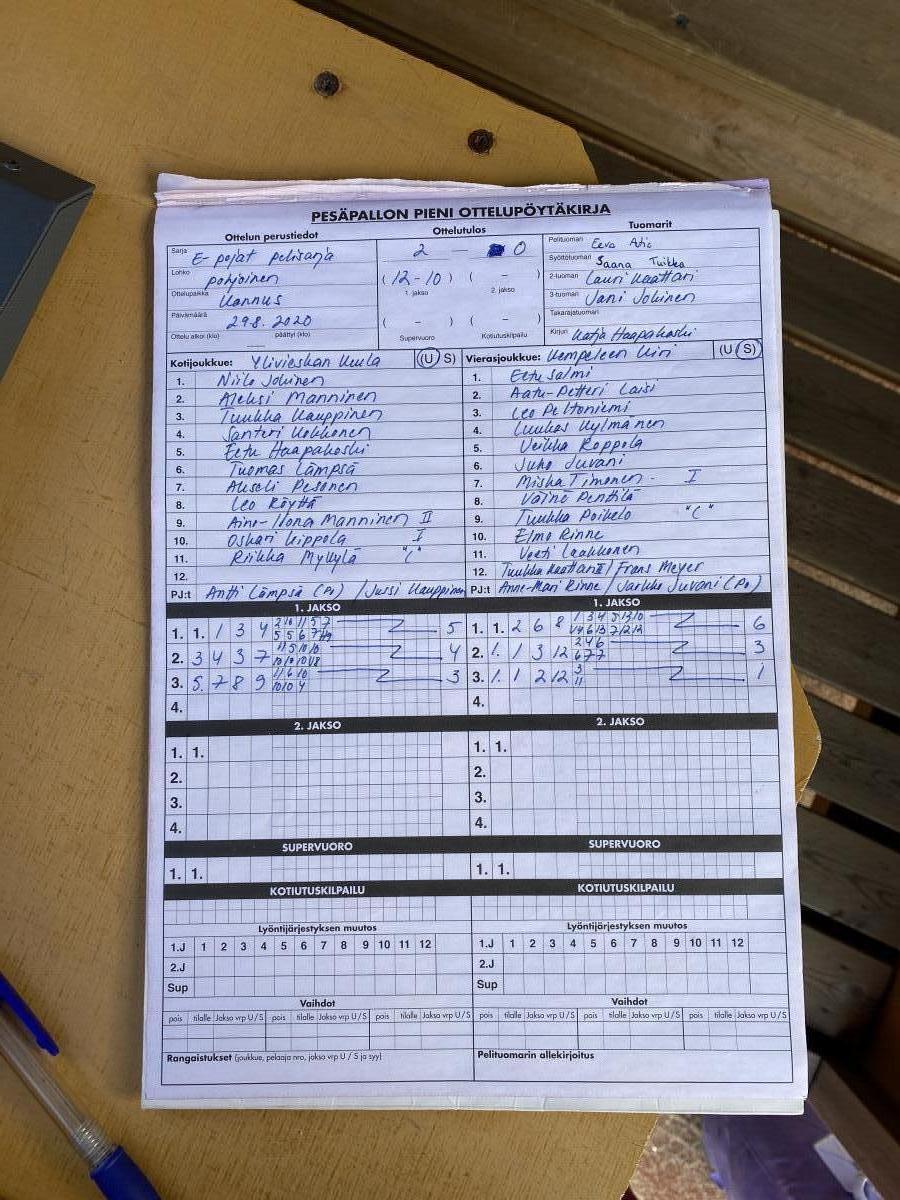 PESÄPALLON PIENI OTTELUPÖYTÄKIRJA
Ottelun perustiedot Ottelutulos Tuomarit
Sarja E-pojat pelisarja
Lohko pohjoinen
Ottelupaikka Kannus
Päivämäärä 29.8. 2020
Ottelu alkoi (klo) päättyi (klo)
2 – 0
(12-10) ( - )
1. jakso 2. jakso
( - ) ( - )
Supervuoro Kotiutuskilpailu
Pelituomari Eeva
Syöttötuomari Saana Tuikka
2-tuomari Lauri Kaattari
3-tuomari Jani Jokinen
Takarajatuomari
Kirjuri Katja Haapakoski
Kotijoukkue: Ylivieskan Kuula (U S)
1. Niilo Jokinen
2. Aleksi Manninen
3. Tuukka Kauppinen
4. Santeri Kokkonen
5. Eetu Haapakoski
6. Tuomas Lämpsä
7. Akseli Pesonen
8. Leo Röyttä
9. Aino-Ilona Manninen II
10. Oskari Kippola I
11. Riikka Myllylä "C"
12.
PJ:t Antti Lämpsä (Pv) / Jussi Kauppinen
Vierasjoukkue: Kempeleen Kiri (U S)
1. Eetu Salmi
2. Aatu-Petteri Laisi
3. Leo Peltoniemi
4. Luukas Kylmänen
5. Veikka Roppola
6. Juho Juvani
7. Miska Timonen - I
8. Väinö Penttilä
9. Tuukka Poikelo "C"
10. Elmo Rinne
11. Veeti Laakkonen
12. Tuukka Kaattari / Frans Meyer
PJ:t Anne-Mari Rinne / Jarkko Juvani (Pv)
1. JAKSO
1. 1. 1 3 4 5
2. 3 4 3 7 4
3. 5. 7 8 9 3
4.
1. JAKSO
1. 1. 2 6 8 6
2. 1. 1 3 12 3
3. 1. 1 2 12 1
4.
2. JAKSO
1. 1.
2.
3.
4.
2. JAKSO
1. 1.
2.
3.
4.
SUPERVUORO
1. 1.
SUPERVUORO
1. 1.
KOTIUTUSKILPAILU
KOTIUTUSKILPAILU
Lyöntijärjestyksen muutos
1.J 1 2 3 4 5 6 7 8 9 10 11 12
2.J
Sup
Lyöntijärjestyksen muutos
1.J 1 2 3 4 5 6 7 8 9 10 11 12
2.J
Sup
Vaihdot
pois tilalle Jakso vrp U/S pois tilalle Jakso vrp U/S pois tilalle Jakso vrp U/S
Vaihdot
pois tilalle Jakso vrp U/S pois tilalle Jakso vrp U/S pois tilalle Jakso vrp U/S
Rangaistukset (joukkue, pelaaja nro, jakso vrp U / S ja syy)
Pelituomarin allekirjoitus